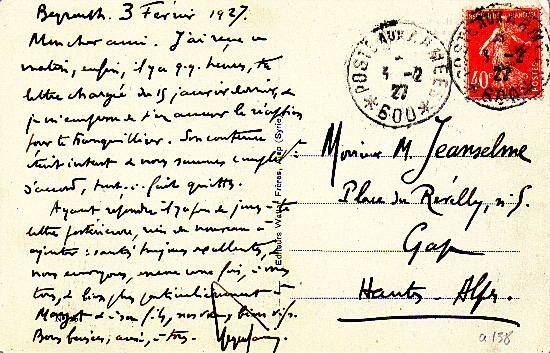 Beyrouth. 3 Février 1927.
Mon cher ami. J'ai reçu ce
matin, enfin, il y a q.q. heures, ta
lettre chargée du 15 janvier dernier, &
je m'empresse de t'en accuser le réception
pour te tranquilliser. Son contenu
était intact & nous sommes complet.
d'accord, tout-à-fait quittes.
Ayant répondu il y a peu de jours à ta
lettre, rien de nouveau à
ajouter : santés toujours excellentes,
nous envoyons, encore une fois, à vous
tous, & bien plus particulièrement à
Margot & à son fils, nos vœux bien vifs.
Bons baisers, aussi, à tous.
Editeurs Frères, Alep (Syrie)
POSTE AUX ARMEES
4 -2
27
600
POSTE AUX ARMEES
-2
27
600
40
POSTES
Monsieur M. Jeanselme
Place du Révelly, n° 5.
Gap
Hautes-Alpes.
a 138